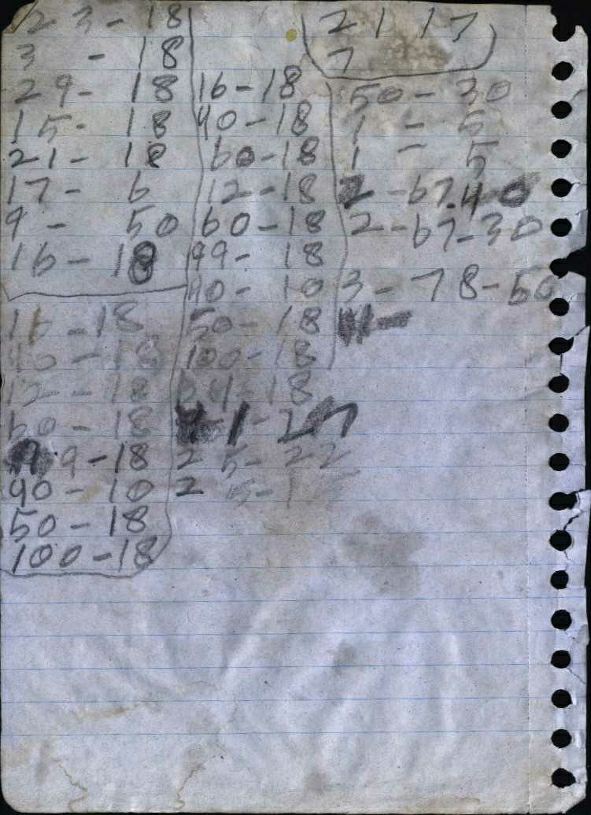 23-18
3 - 18
29- 18
15- 18
21- 18
17- 6
9 - 50
16-18
16-18
90-18
12-18
60-18
9-18
90-10
50-18
100-18
16-18
40-18
60-18
12-18
60-18
99- 18
90- 10
50-18
100-18
-18
1-2
2 5-22
2 5-1
2 1 17
7
50-30
1 - 5
1 - 5
2-67.40
2-67-30
3-78-50